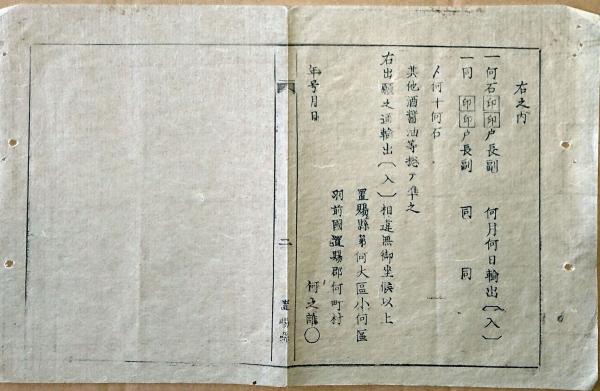 右之内
一何石印印戸長副 何月何日輸出(入)
一同 印印戸長副 同 同
〆何十何石
其他酒醤油等総テ準之
右出願之通輸出(入)相違無御坐候以上
置賜縣第何大區小何區
羽前國置賜郡何町村
何之誰〇
年号月日
二
置賜縣